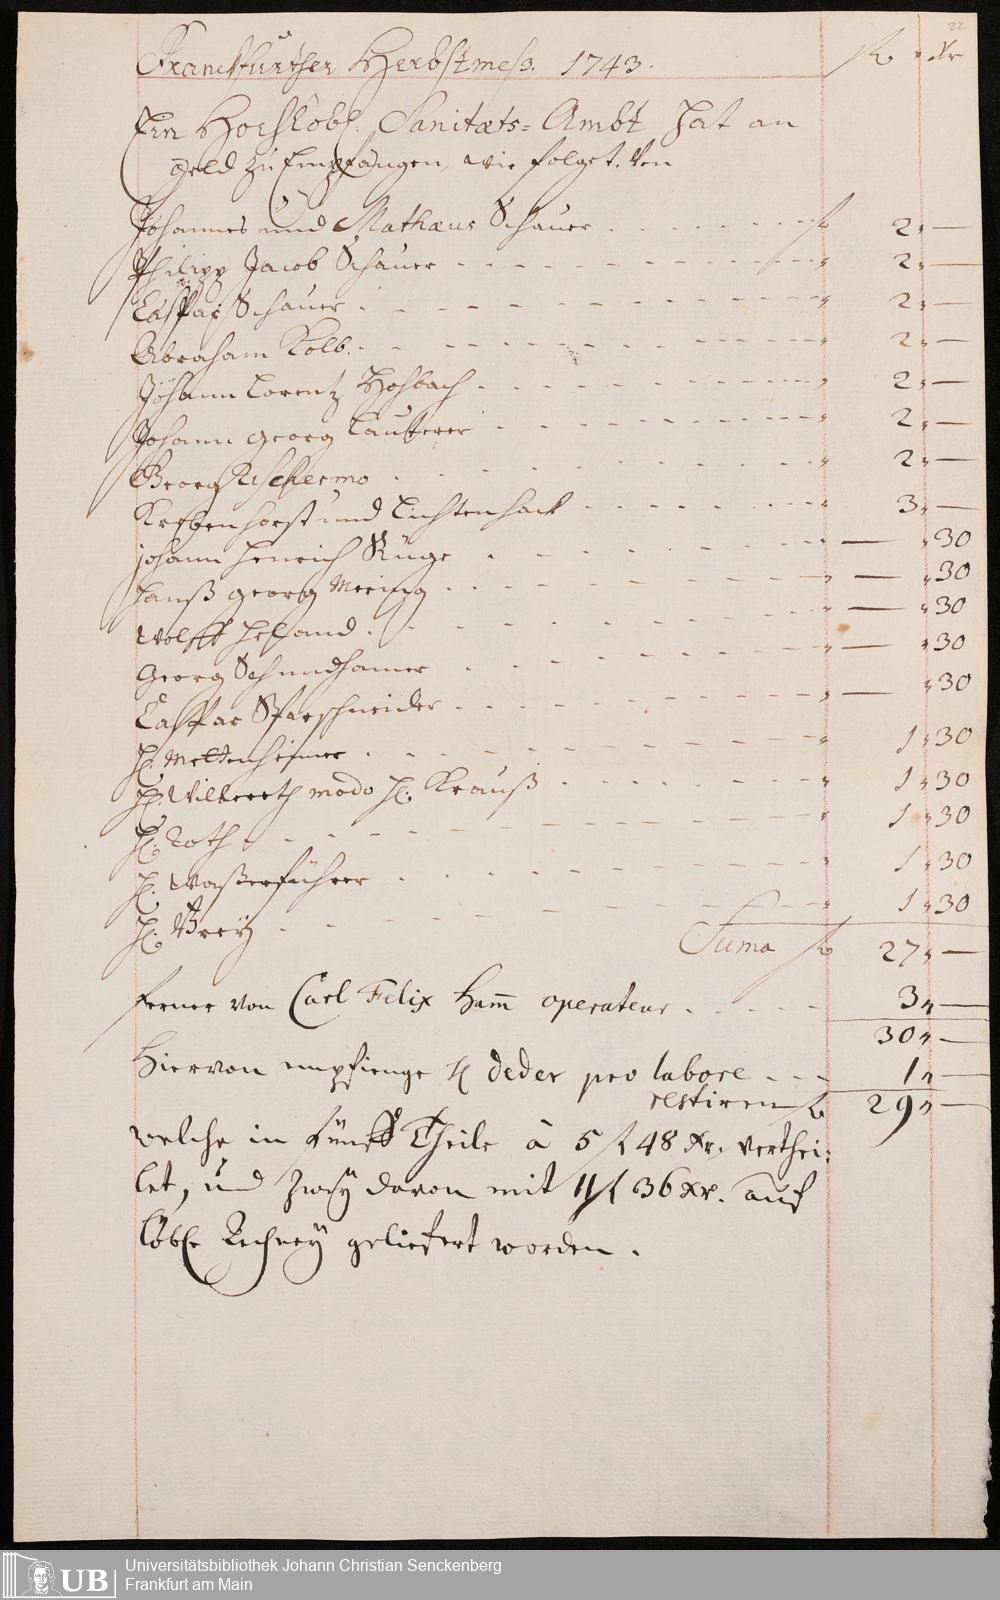 22
Franckfurther Herbstmeß. 1743. fl " Xr
Ein Hochlöbl. Sanitæts=Ambt hat an
geld zu Empfangen, wie folget. Von
Johannes und Mathæus Schauer . . . . . . . fl 2 " —
Philipp Jacob Schauer - - - - - - - - - " 2 " —
Casspar Schauer - - - - - - - - - " 2 " —
Abraham Kolb. - - - - - - - - - " 2 " —
Johann Lorentz Hosbach - - - - - - - - " 2 " —
Johann Georg Lauterer - - - - - - - - " 2 " —
Georg - - - - - - - - " 2 " —
und Lichtenhack . . . . . . . " 3 " —
Johann Henrich Rüge . - - - - - - " — " 30
Hanß Georg Mering - - - - - - - " — " 30
Wolff Heland . - - - - - - - " — " 30
Georg Schmidhamer - - - - - - - " — " 30
Casspar Starschneider - - - - - - - " — " 30
H. Mettenheimer - - - - - - - - " 1 " 30
H. modo H. Krauß . - - - - - " 1 " 30
H. Roth - - - - - - - - - " 1 " 30
H. Waßerführer . - - - - - - - " 1 " 30
H. Breÿ - - - - - - - - " 1 " 30
Suma fl 27 " —
ferner von Carl Felix Ham̅ operateur . . . . . 3 " —
30 " —
Hiervon empfienge H deder pro labore - - - 1 " —
restiren fl 29 " —
welche in fünff Theile à 5 fl 48 Xr. verthei:
let, und zweÿ davon mit 11 fl 36 Xr. auf
löbl. Rechneÿ geliefert worden.
UB Universitätsbibliothek Johann Christian Senckenberg
Frankfurt am Main